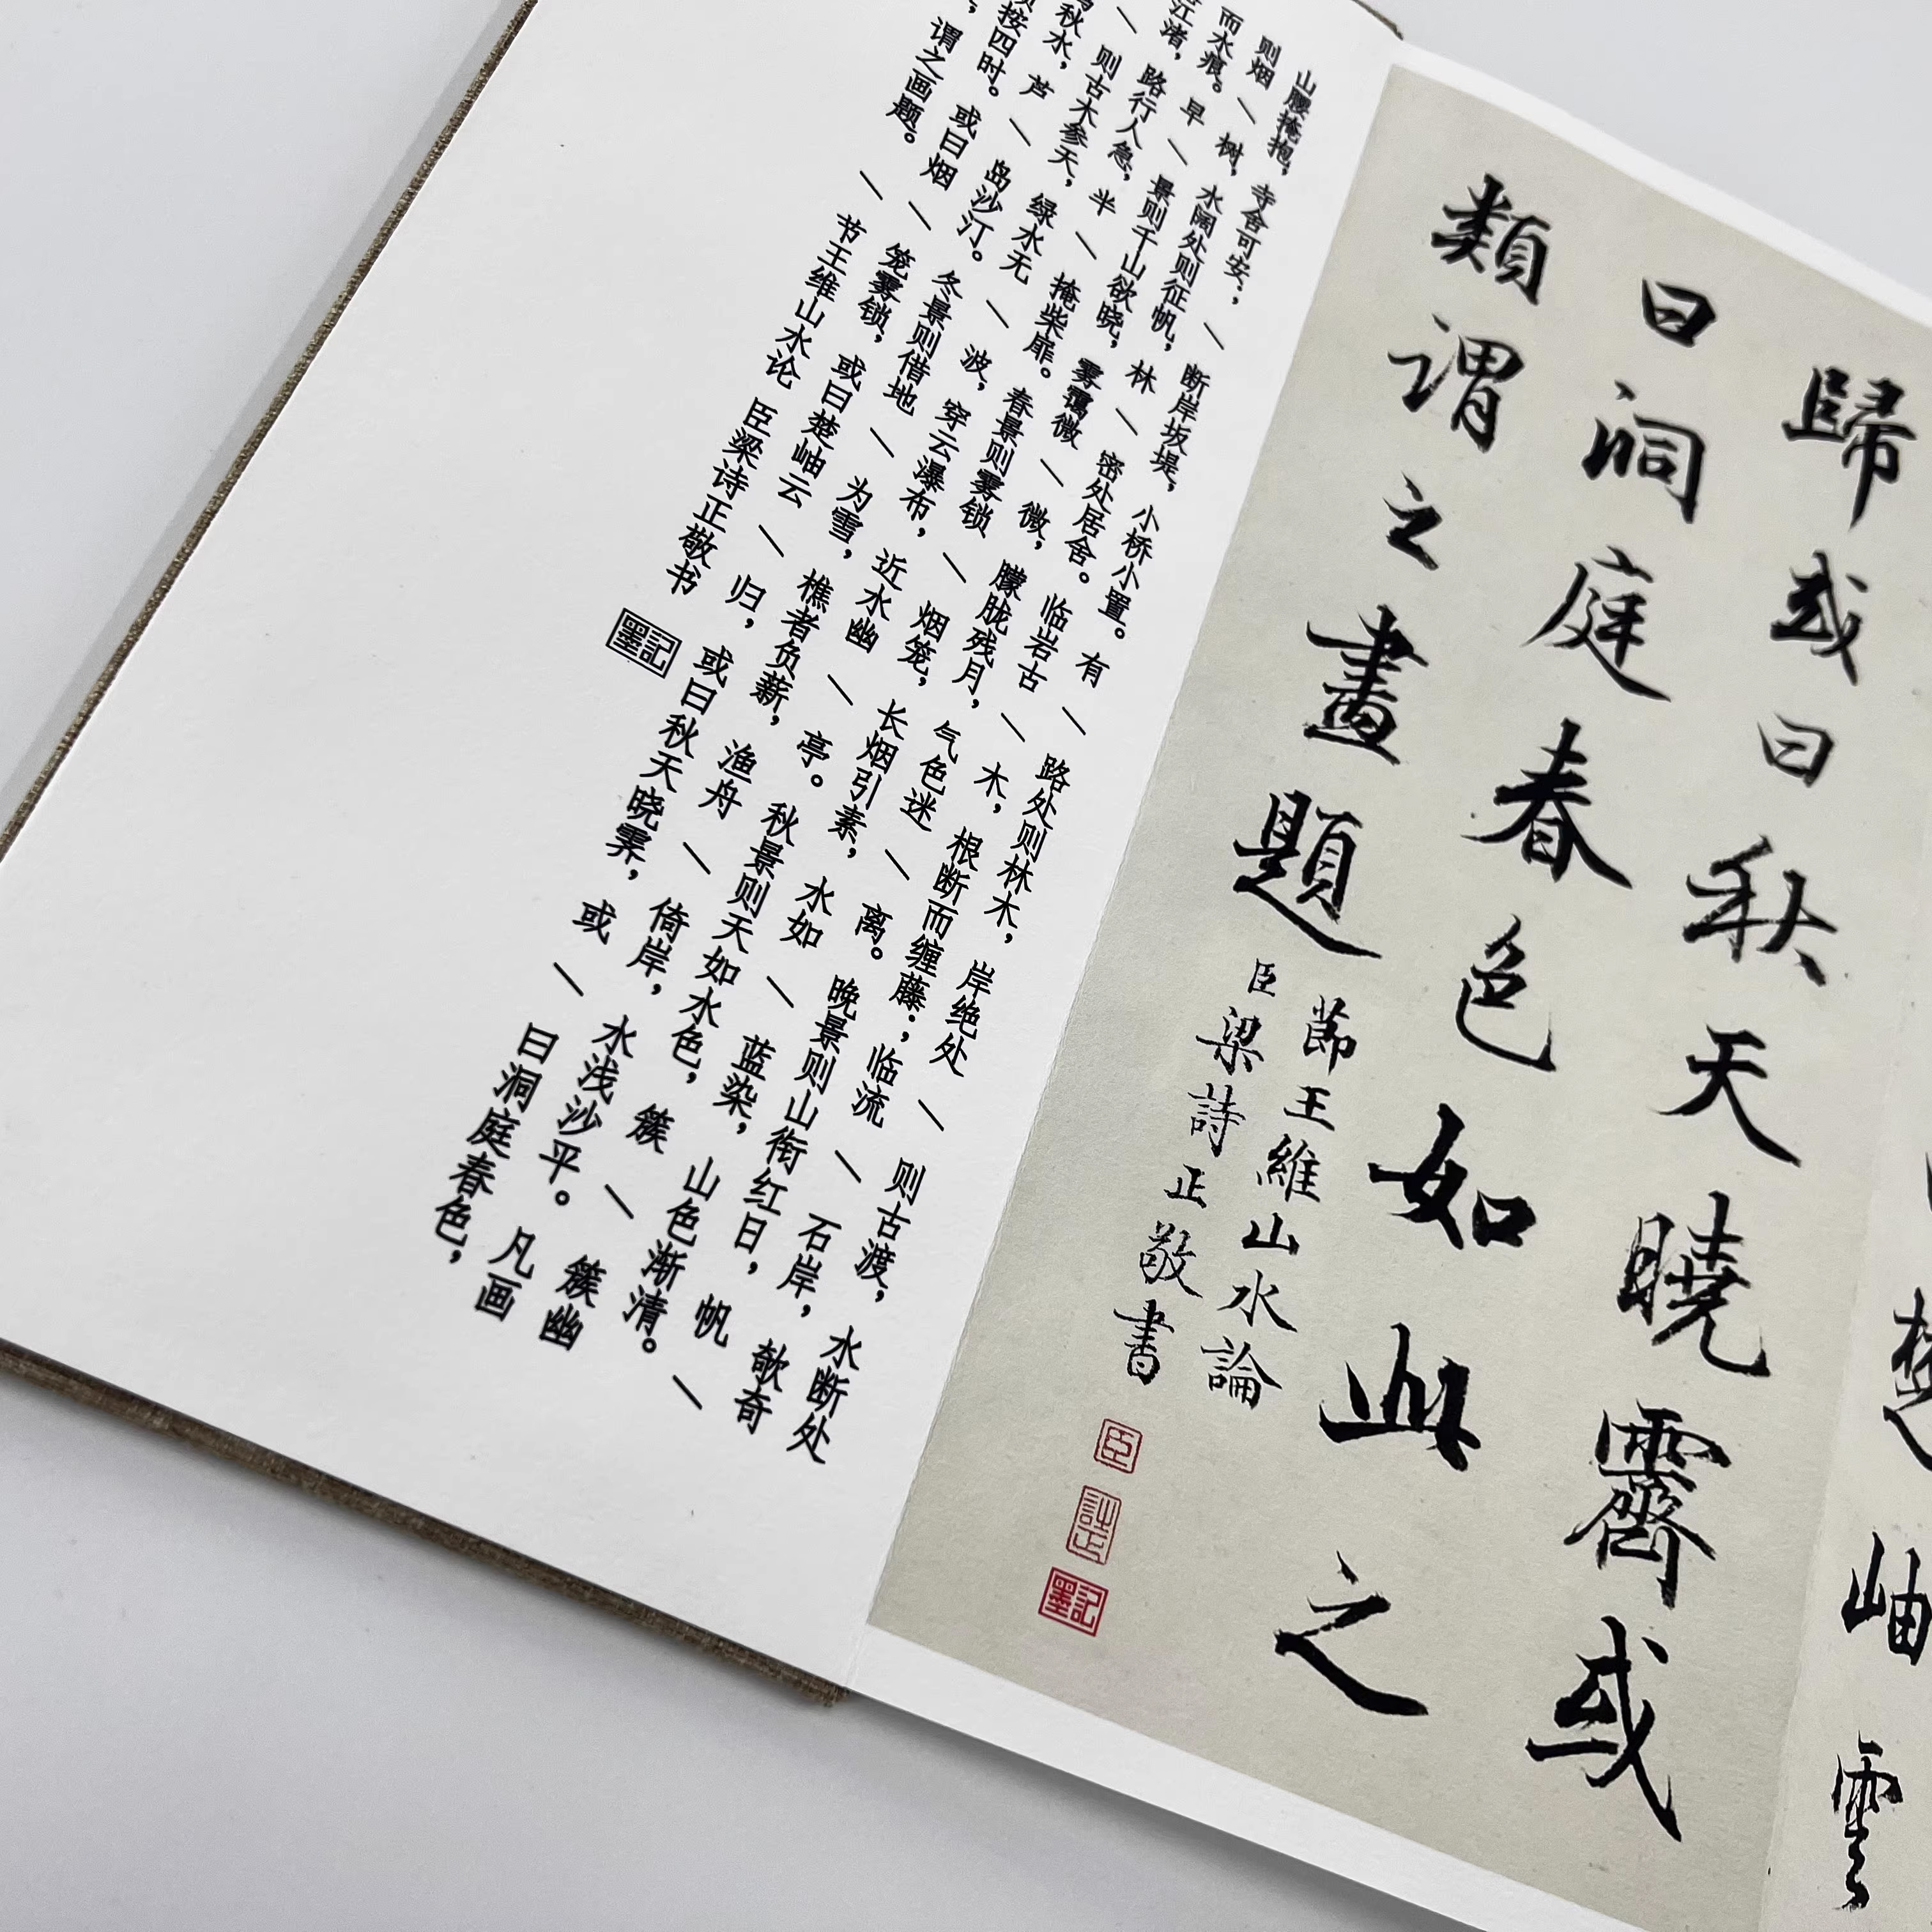 楚岫雲
歸或曰秋天曉霽或
曰洞庭春色如此之
類謂之畫題
節王維山水論
臣梁詩正敬書
臣
詩正
墨記
山腰掩抱，寺舍可安；/断岸坂堤，小桥小置。有/路处则林木，岸绝处/则古渡，水断处
则烟/树，水阔处则征帆，林/密处居舍。临岩古/木，根断而缠藤；临流/石岸，欹奇
而水痕。早/景则千山欲晓，雾霭微/微，朦胧残月，气色迷/离。晚景则山衔红日，帆
江渚，路行人急，半/掩柴扉。春景则雾锁/烟笼，长烟引素，水如/蓝染，山色渐清。/
/则古木参天，绿水无/波，穿云瀑布，近水幽/亭。秋景则天如水色，簇/簇幽
秋水，芦/岛沙汀。冬景则借地/为雪，樵者负薪，渔舟/倚岸，水浅沙平。凡画
按四时。或曰烟/笼雾锁，或曰楚岫云/归，或曰秋天晓霁，或/曰洞庭春色，
，谓之画题。/节王维山水论 臣梁诗正敬书 墨記